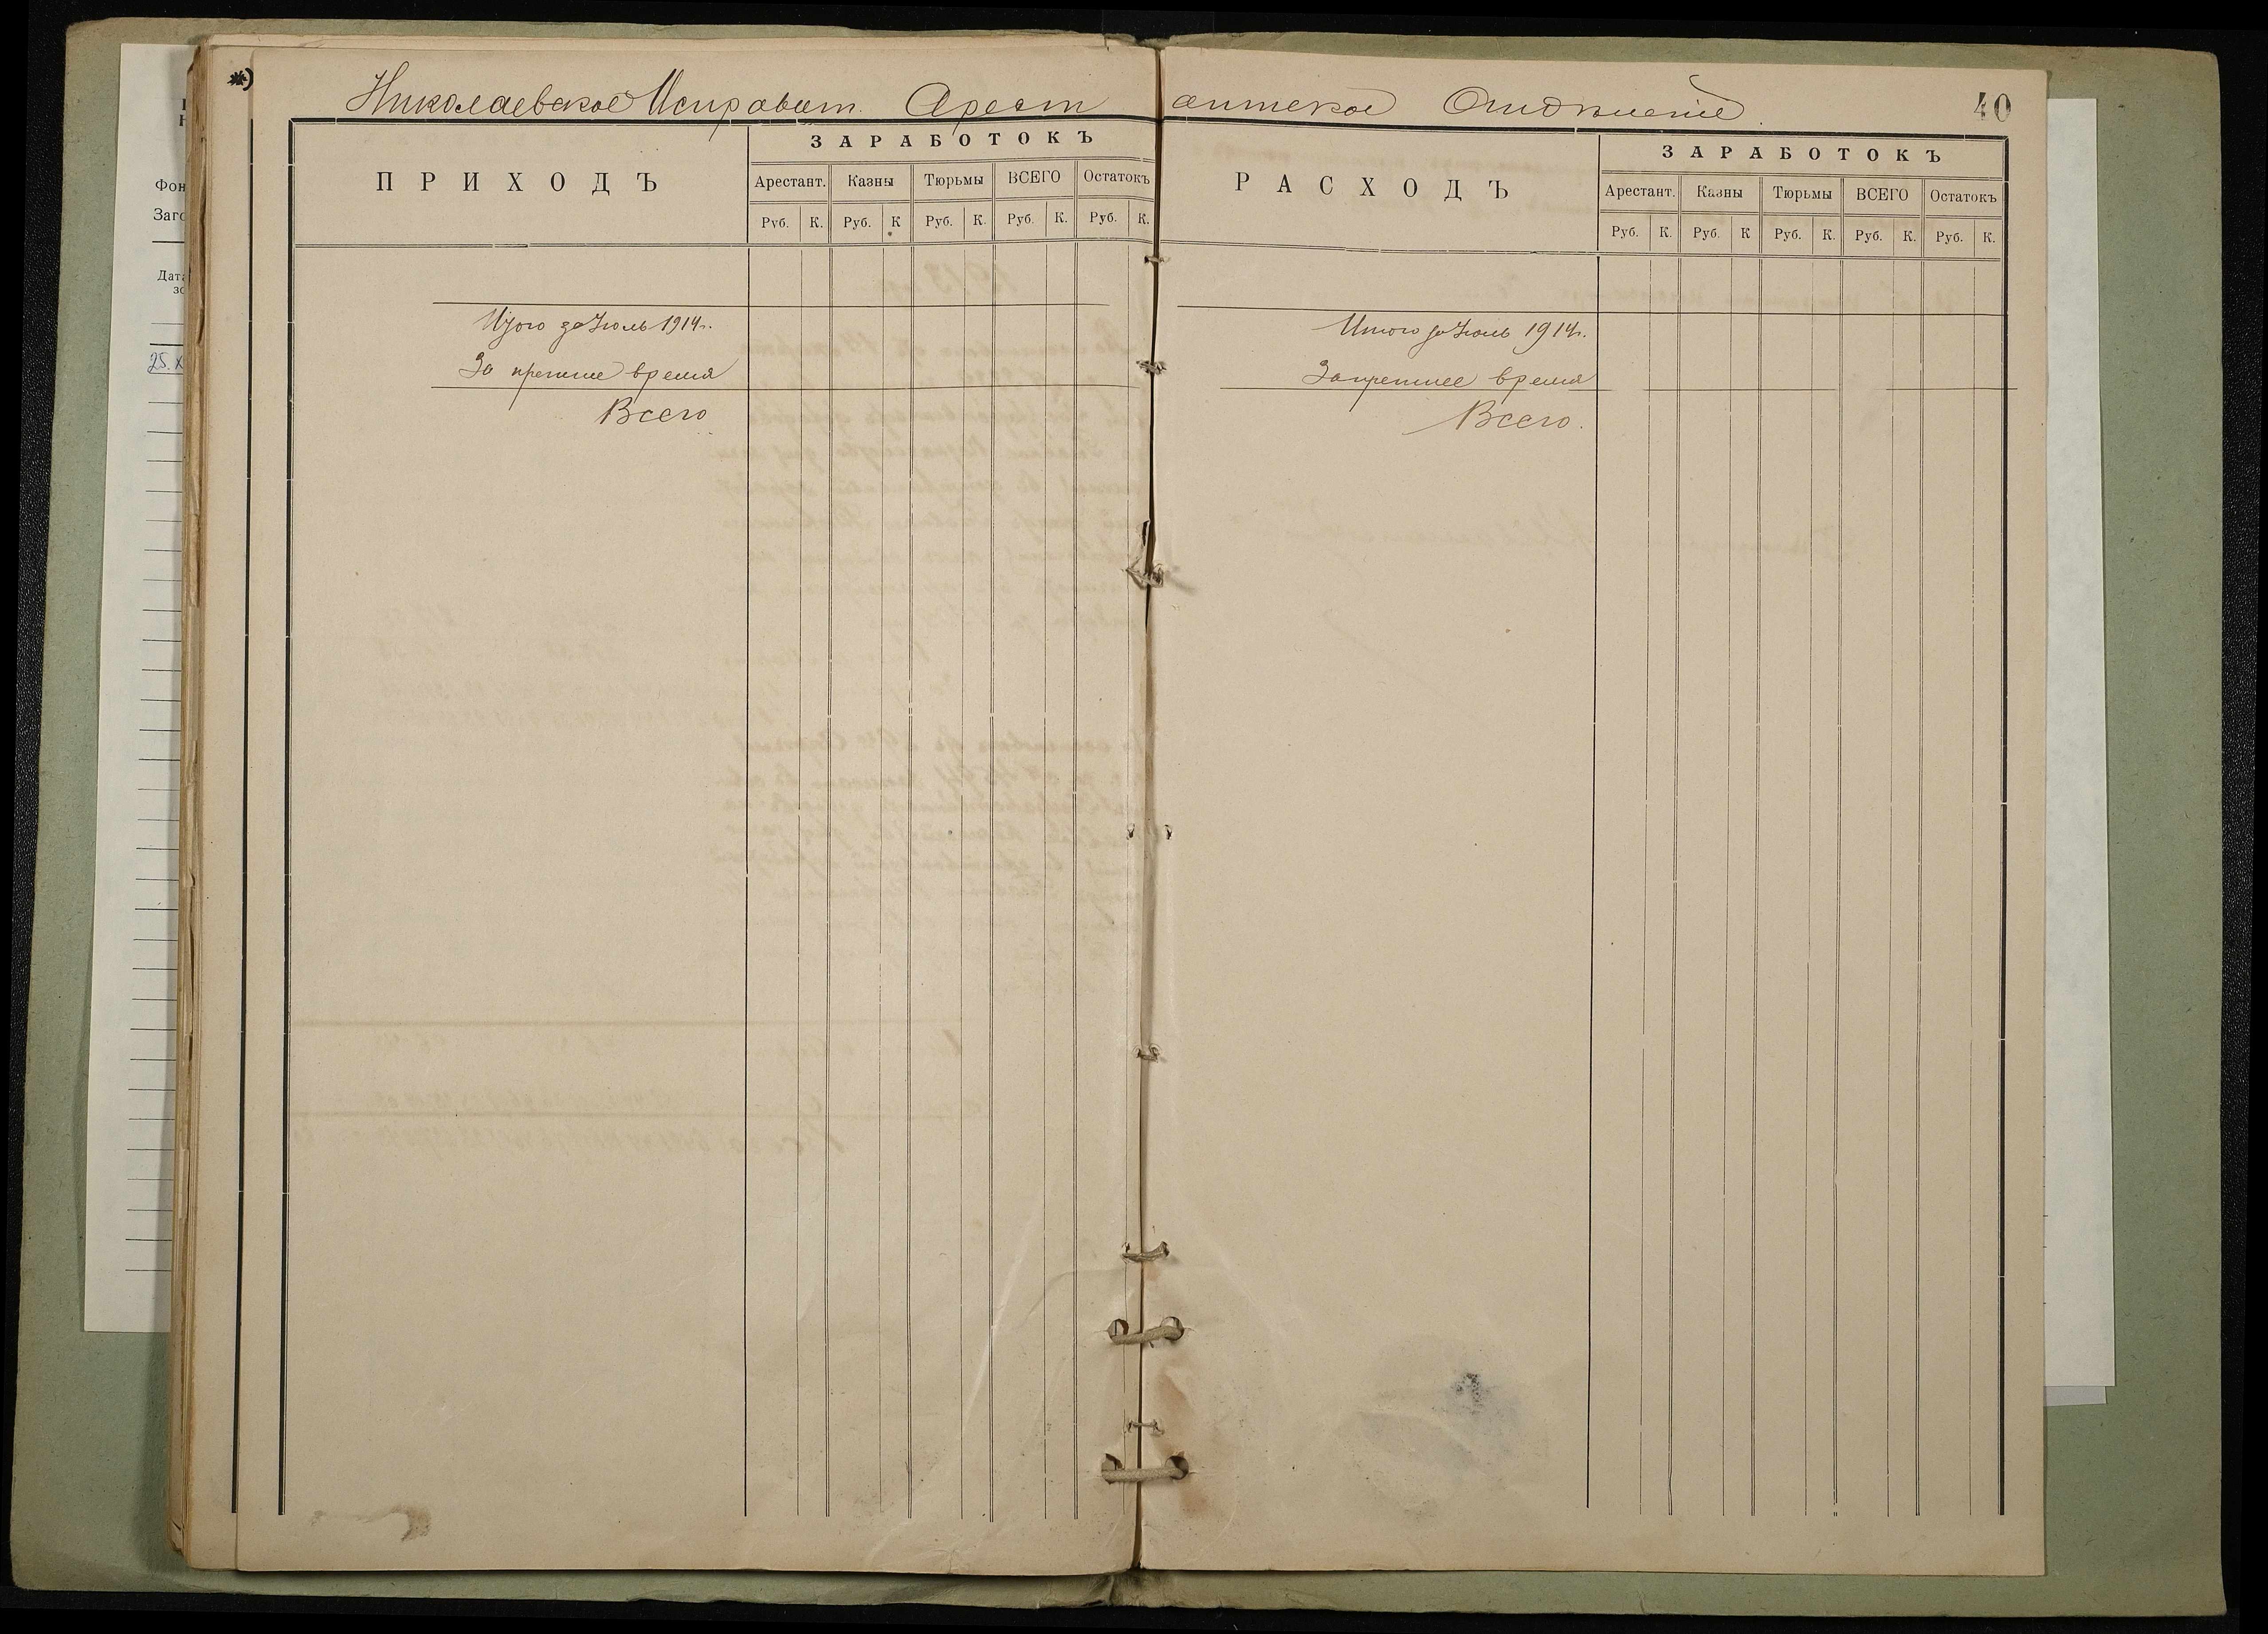 *)
Николаевское Исправит. Арестантское Отдѣленіе.
40
ПРИХОДЪ
ЗАРАБОТОКЪ
Арестант. Казны Тюрьмы ВСЕГО Остатокъ
Руб. К. Руб. К Руб. К. Руб. К. Руб. К.
Итого за Іюль 1914 г.
За прежнее время
Всего
РАСХОДЪ
ЗАРАБОТОКЪ
Арестант. Казны Тюрьмы ВСЕГО Остатокъ
Руб. К. Руб. К Руб. К. Руб. К. Руб. К.
Итого за Іюль 1914 г.
За прежнее время
Всего.
Фон
Заго
Дата
25.X